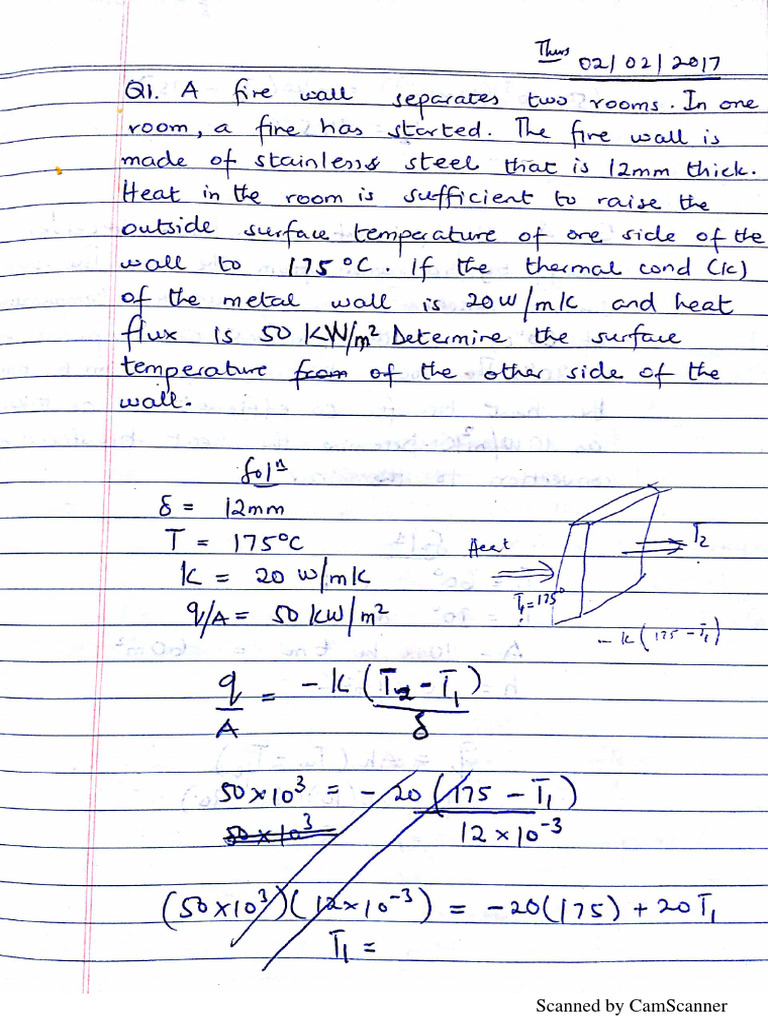 Thurs
02/02/2017
Q1. A fire wall separates two rooms. In one
room, a fire has started. The fire wall is
made of stainless steel that is 12mm thick.
Heat in the room is sufficient to raise the
outside surface temperature of one side of the
wall to 175°C. If the thermal cond (k)
of the metal wall is 20W/mk and heat
flux is 50 KW/m² Determine the surface
temperature from of the other side of the
wall.
Solⁿ
δ = 12mm
T = 175°C
K = 20 W/mk
q/A = 50 KW/m²
Heat
T₂
T₁=175°
-k(175-T₁)
q/A = -k(T₂-T₁)/δ
50×10³ = -20(175-T₁)/12×10⁻³
50×10³
(50×10³)(12×10⁻³) = -20(175) + 20T₁
T₁ =
Scanned by CamScanner